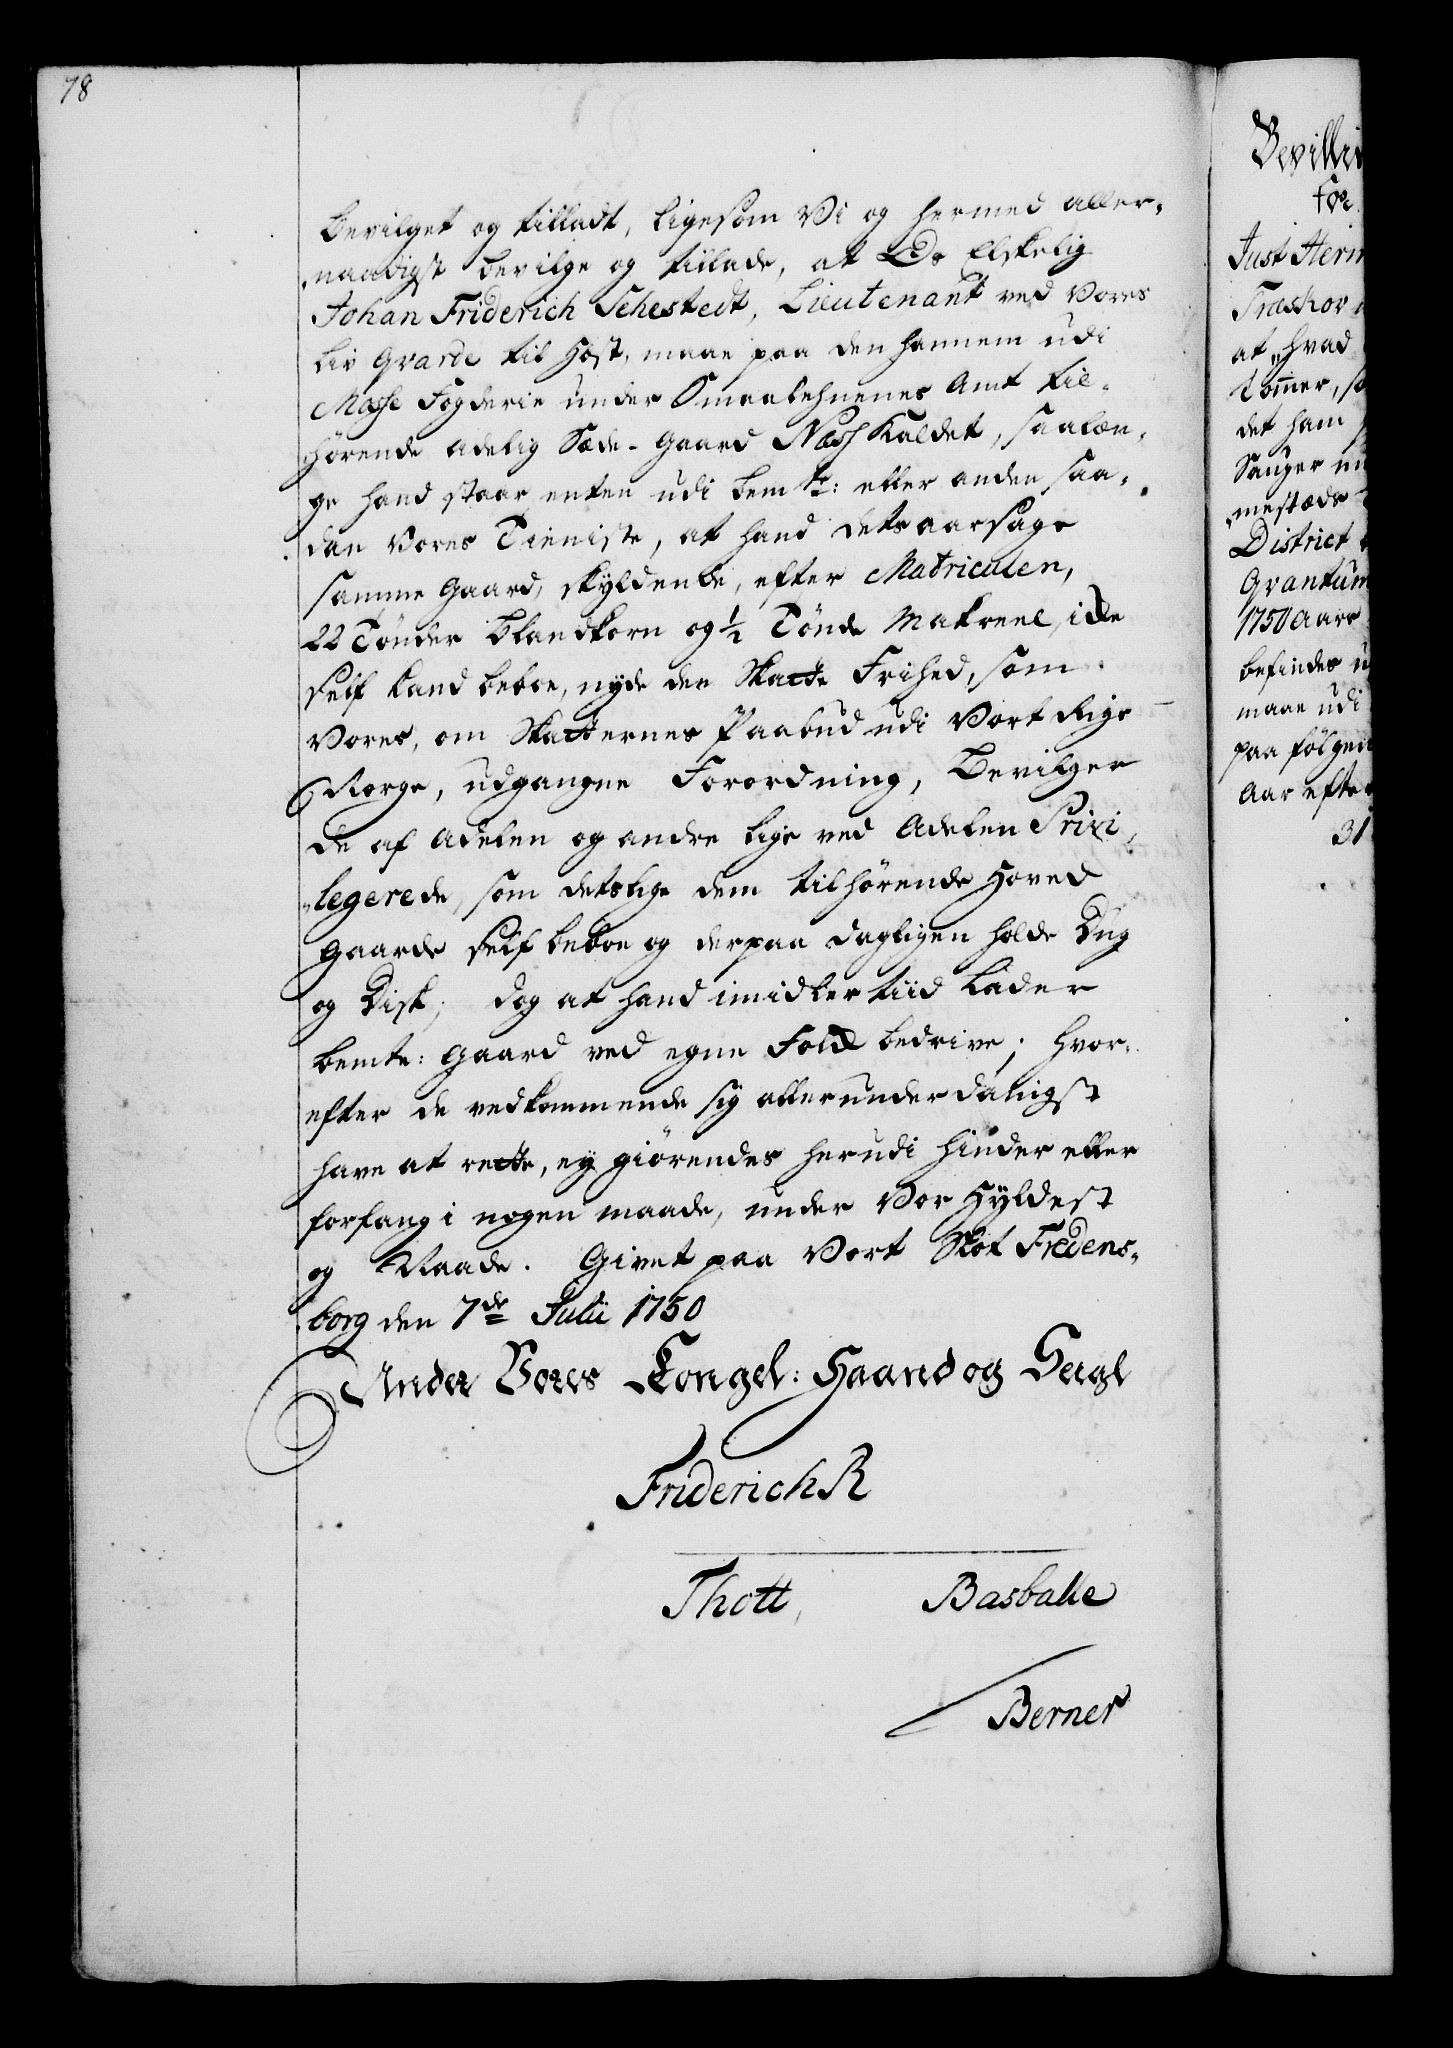 78
bevilget og tilladt, ligesom Vi og hermed aller-
naadigst bevilge og tillade, at Os Elskelig
Johan Friderich Sehestedt, Lieutenant ved Vores
Liv Gvarde til Hest, maae paa den hannem udi
Mosse Fogderie under Smaalehnenes Amt til-
hørende adelig Sæde-Gaard Næss kaldet, saalæn-
ge hand staar enten udi bemte: eller anden saa-
dan Vores Tieniste, at hand dets aarsage
samme Gaard, skyldende, efter Matriculen,
22 Tønder blandkorn og ½ Tønde Makreel, ikke
self kand beboe, nyde den Skatte Frihed, som
Vores, om Skatternes Paabud udi Vort Rige
Norge, udgangne Forordning, bevilger
de af Adelen og andre lige ved Adelen Privi-
legerede, som detslige dem tilhørende Hoved
Gaarde self beboe og derpaa dagligen holde Dug
og Disk; dog at hand imidlertiid lader
bemte: Gaard ved egne Folk bedrive; hvor-
efter de vedkommende sig allerunderdanigst
have at rette, ey giørendes herudi hinder eller
forfang i nogen maade, under Vor Hyldest
og Naade. Givet paa Vort Slot Fredens-
borg den 7de Julii 1750
Under Vores Kongel: Haand og Seigl
Friderich R
Thott, Basballe
Berner
Bevilli
For
Just Herm
Træskov
at hvad
Tømmer, s
det ham
Sauger
mestæds
District
Qvantum
1750 Aars
befindes
maae udi
paa følgen
Aar efter
31